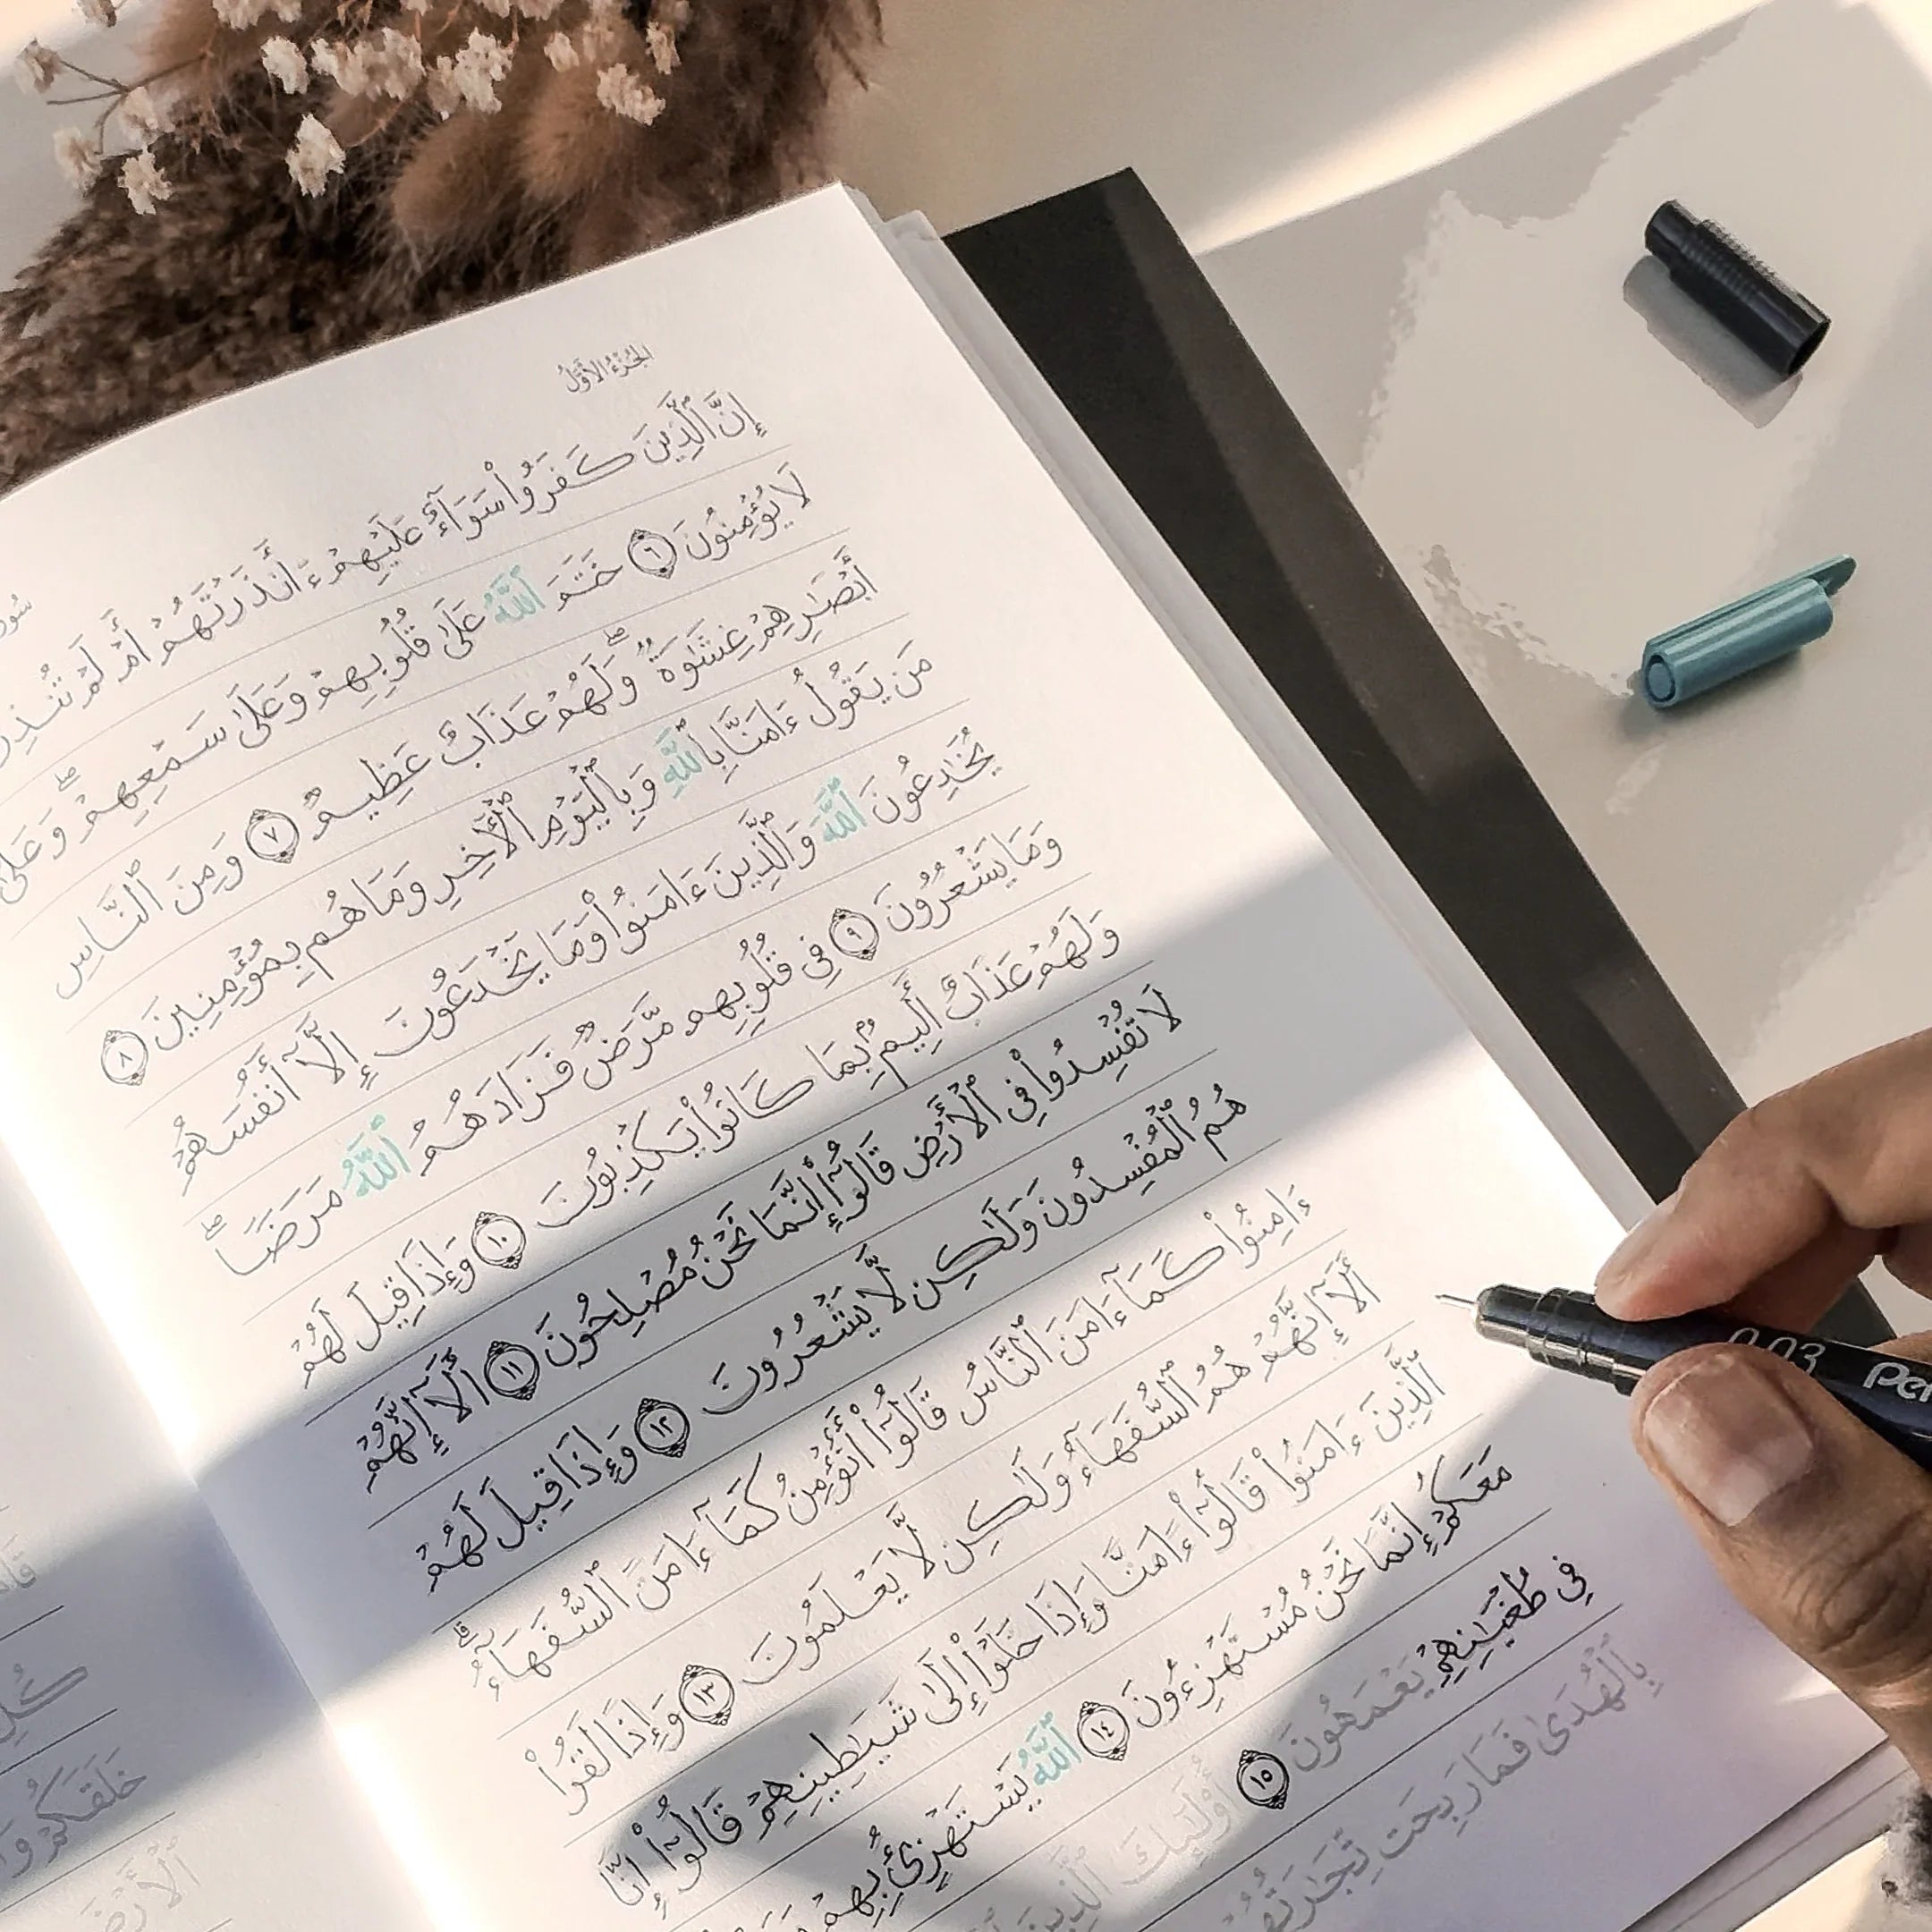 الجزء الأول
إِنَّ ٱلَّذِينَ كَفَرُوا۟ سَوَآءٌ عَلَيْهِمْ ءَأَنذَرْتَهُمْ أَمْ لَمْ تُنذِرْ
لَا يُؤْمِنُونَ ٦ خَتَمَ ٱللَّهُ عَلَىٰ قُلُوبِهِمْ وَعَلَىٰ سَمْعِهِمْ ۖ وَعَلَىٰ
أَبْصَٰرِهِمْ غِشَٰوَةٌ ۖ وَلَهُمْ عَذَابٌ عَظِيمٌ ٧ وَمِنَ ٱلنَّاسِ
مَن يَقُولُ ءَامَنَّا بِٱللَّهِ وَبِٱلْيَوْمِ ٱلْأَخِرِ وَمَا هُم بِمُؤْمِنِينَ ٨
يُخَٰدِعُونَ ٱللَّهَ وَٱلَّذِينَ ءَامَنُوا۟ وَمَا يَخْدَعُونَ إِلَّآ أَنفُسَهُمْ
وَمَا يَشْعُرُونَ ٩ فِى قُلُوبِهِم مَّرَضٌ فَزَادَهُمُ ٱللَّهُ مَرَضًا ۖ
وَلَهُمْ عَذَابٌ أَلِيمٌۢ بِمَا كَانُوا۟ يَكْذِبُونَ ١٠ وَإِذَا قِيلَ لَهُمْ
لَا تُفْسِدُوا۟ فِى ٱلْأَرْضِ قَالُوٓا۟ إِنَّمَا نَحْنُ مُصْلِحُونَ ١١ أَلَآ إِنَّهُمْ
هُمُ ٱلْمُفْسِدُونَ وَلَٰكِن لَّا يَشْعُرُونَ ١٢ وَإِذَا قِيلَ لَهُمْ
ءَامِنُوا۟ كَمَآ ءَامَنَ ٱلنَّاسُ قَالُوٓا۟ أَنُؤْمِنُ كَمَآ ءَامَنَ ٱلسُّفَهَآءُ ۗ
أَلَآ إِنَّهُمْ هُمُ ٱلسُّفَهَآءُ وَلَٰكِن لَّا يَعْلَمُونَ ١٣ وَإِذَا لَقُوا۟
ٱلَّذِينَ ءَامَنُوا۟ قَالُوٓا۟ ءَامَنَّا وَإِذَا خَلَوْا۟ إِلَىٰ شَيَٰطِينِهِمْ قَالُوٓا۟ إِنَّا
مَعَكُمْ إِنَّمَا نَحْنُ مُسْتَهْزِءُونَ ١٤ ٱللَّهُ يَسْتَهْزِئُ بِهِمْ
فِى طُغْيَٰنِهِمْ يَعْمَهُونَ ١٥ أُو۟لَٰٓئِكَ ٱلَّذِينَ
بِٱلْهُدَىٰ فَمَا رَبِحَت تِّجَٰرَتُهُمْ
0.03